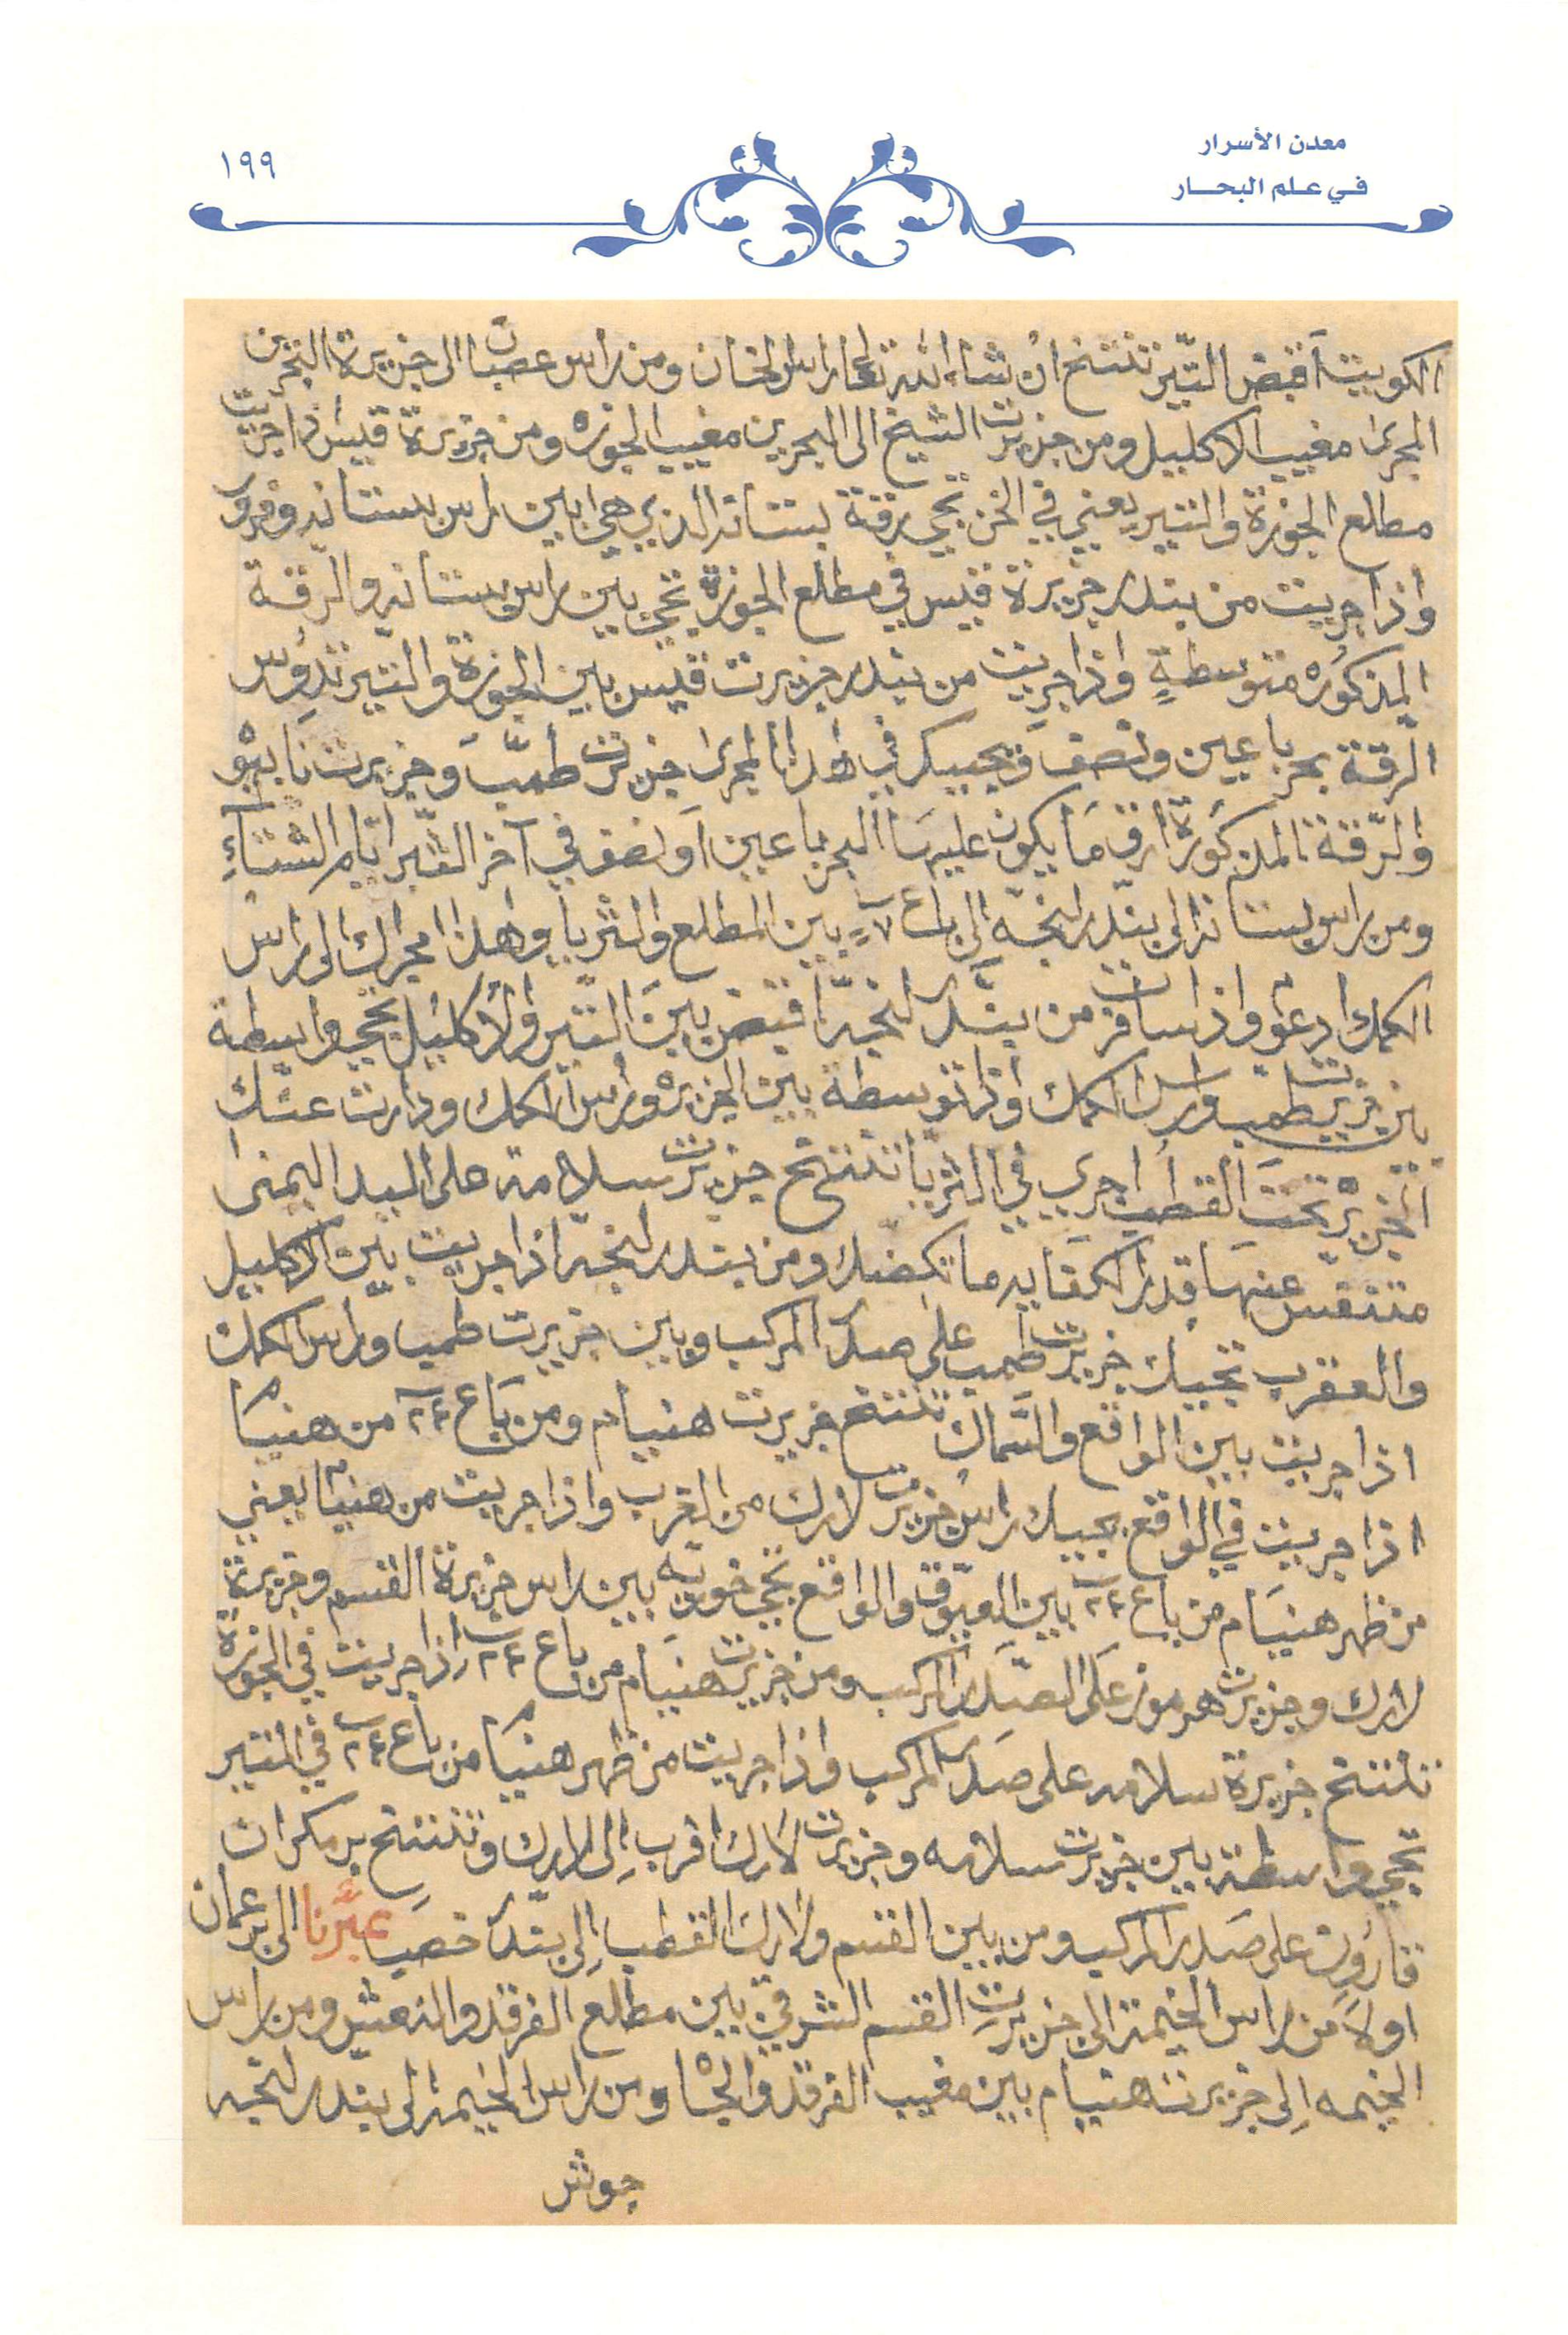 معدن الأسرار
في علم البحار
١٩٩
الكويت أقبض التير تنتتخ ان شاء الله تعا راس الخان ومن راس عصبان الى جزيرة البحرين
المجرا مغيب الاكليل ومن جزيرت الشيخ الى البحرين مغيب الجوزه ومن جزيرة قيس اذا جريت
مطلع الجوزة والتير يعني في الخن تجي رقة بستانه الذي هي ابين راس بستانه وفرور
واذا جريت من بندر جزيرة قيس في مطلع الجوزة تجي بين راس بستانه والرقة
المذكوره متوسطةٍ واذا جريت من بندر جزيرت قيس بين الجوزة والتير تدوس
الرقة بحر باعين ونصف ويجيبك في هذا المجرا جزيرت طمب وجزيرت نابيو
والرقة المذكورة ارق ما يكون عليها البحر باعين او نصف في آخر التير ايام الشتاءِ
ومن راس بستانه الى بندر لنجه الى باع ٧ بين المطلع والثريا وهذا مجراك الى راس
الكمك ادعو واذا سافرت من بندر لنجه اقبض بين التير والاكليل تجي واسطة
بين جزيرت طمب وراس الكمك واذا توسطة بين الجزيره وراس الكمك ودارت عنك
الجزيره تحت القطب اجري في الثريا تنتتخ جزيرت سلامة على اليد اليمنا
متنفس عنها قدر الكفايه ما تكضك ومن بندر لنجه اذا جريت بين الاكليل
والعقرب تجيك جزيرت طمب على صدر المركب وبين جزيرت طمب وراس الكمك
اذا جريت بين الواقع والسماك تنتتخ جزيرت هنيام ومن باع ٢٤ من هنيام
اذا جريت في الواقع يجيك راس جزيرت لارك من الغرب واذا جريت من هنيام يعني
من ظهر هنيام من باع ٢٤ بين العيوق والواقع تجي خوريه بين راس جزيرة القسم وجزيرة
لارك وجزيرت هرموز على الصدر المركب ومن جزيرت هنيام من باع ٢٤ اذا جريت في الجوزة
تنتتخ جزيرة سلامه على صدر المركب واذا جريت من ظهر هنيام من باع ٢٤ في التير
تجي واسطة بين جزيرت سلامه وجزيرت لارك اقرب إلى لارك وتنتتخ بر مكران
قارون على صدر المركب ومن بين القسم ولارك القطب إلى بندر خصب عبَّرنا الى بر عمان
اولاً من راس الخيمة الى جزيرت القسم الشرقي بين مطلع الفرقد والنعش ومن راس
الخيمه إلى جزيرت هنيام بين مغيب الفرقد والجاه ومن راس الخيمة الى بندر لنجه
جوش